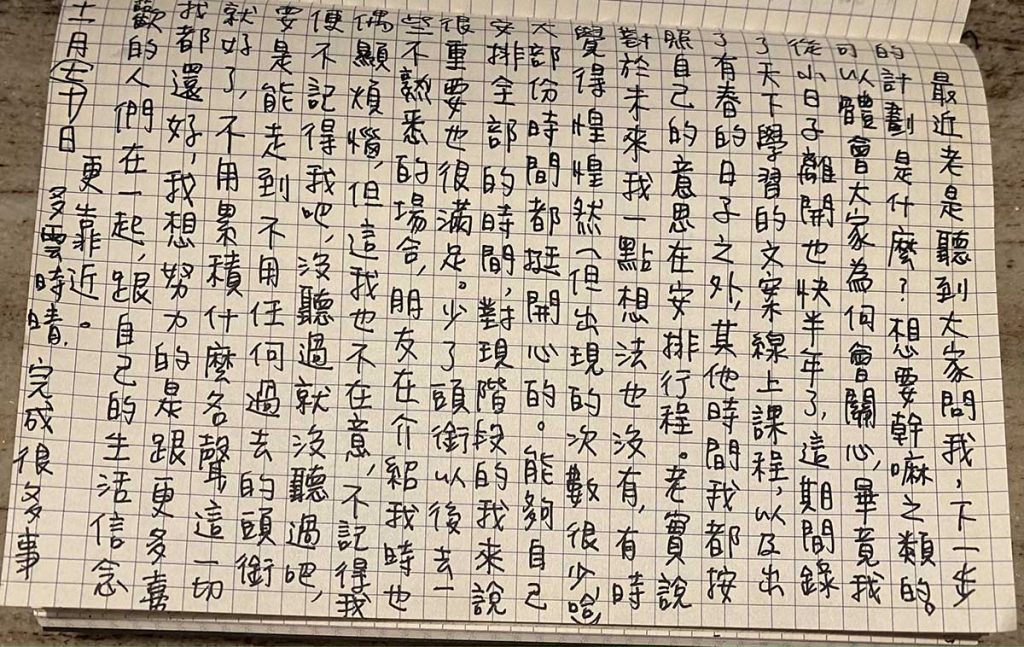 最近老是聽到大家問我，下一步
的計劃是什麼？想要幹嘛之類的。
可以體會大家為何會關心，畢竟我
從小日子離開也快半年了，這期間錄
了天下學習的文案線上課程，以及出
了有春的日子之外，其他時間我都按
照自己的意思在安排行程。老實說
對於未來我一點想法也沒有，有時
覺得惶惶然（但出現的次數很少哈）
大部份時間都挺開心的。能夠自己
安排全部的時間，對現階段的我來說
很重要也很滿足。少了頭銜以後去一
些不熟悉的場合，朋友在介紹我時也
偶顯煩惱，但這我也不在意，不記得我
便不記得我吧，沒聽過就沒聽過吧，
要是能走到不用任何過去的頭銜
就好了，不用累積什麼名聲這一切
我都還好，我想努力的是跟更多喜
歡的人們在一起，跟自己的生活信念
更靠近。
十一月二十日 多雲時晴，完成很多事